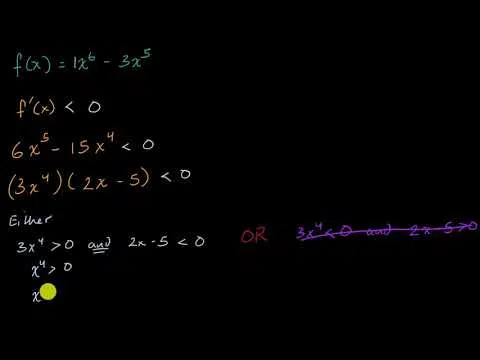 f(x) = 1x⁶ - 3x⁵
f'(x) < 0
6x⁵ - 15x⁴ < 0
(3x⁴)(2x - 5) < 0
Either
3x⁴ > 0 and 2x - 5 < 0 OR 3x⁴ < 0 and 2x - 5 > 0
x⁴ > 0
x